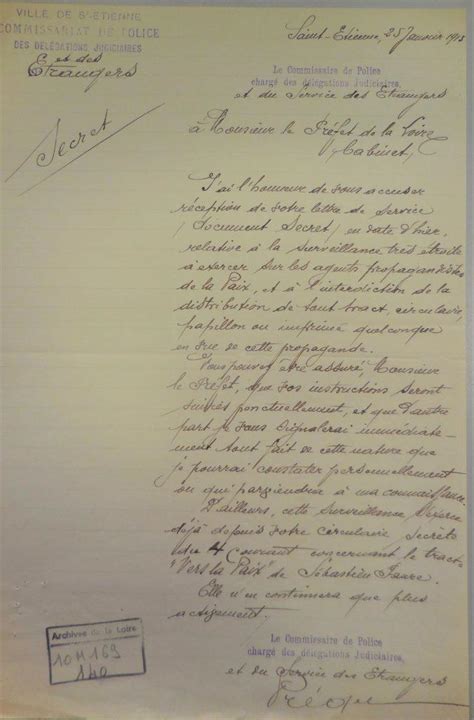 VILLE DE St-ETIENNE
COMMISSARIAT DE POLICE
DES DÉLÉGATIONS JUDICIAIRES
et des
Etrangers
Secret
Saint-Etienne, 25 Janvier 1915
Le Commissaire de Police
chargé des délégations Judiciaires,
et du Service des Etrangers
à Monsieur le Préfet de la Loire
(Cabinet)
J'ai l'honneur de vous accuser
réception de votre lettre de service
(Document Secret) en date d'hier,
relative à la surveillance très étroite
à exercer sur les agents propagandistes
de la Paix, et à l'interdiction de la
distribution de tout tract, circulaire,
papillon ou imprimé quelconque
en vue de cette propagande.
Vous pouvez être assuré, Monsieur
le Préfet, que vos instructions seront
suivies ponctuellement, et que d'autre
part je vous signalerai immédiate-
ment tout fait de cette nature que
je pourrai constater personnellement
ou qui parviendra à ma connaissance.
D'ailleurs, cette surveillance s'exerce
déjà depuis votre circulaire Secrète
du 4 courant concernant le tract
"Vers la Paix" de Sébastien Faure.
Elle n'en continuera que plus
activement.
Le Commissaire de Police
chargé des délégations Judiciaires,
et du Service des Etrangers
Archives de la Loire
10M169
140